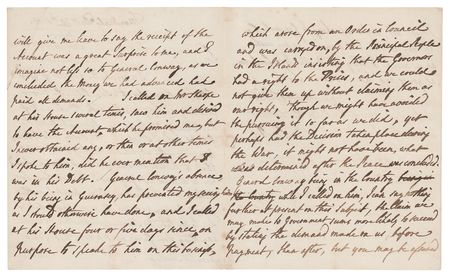 will give me leave to say the receipt of the
Account was a great Surprise to me, and I
imagine not less so to General Conway, as we
concluded the Money we had advanced had
paid all demands. I called on Mr Sharpe
at his House several times, saw him and desired
to have the Account which he promised me, but
I never obtained any, or then or at other times
I spoke to him, did he ever mention that I
was in his Debt. General Conway's absence
by his being in Guernsey, has prevented my seeing him
as I should otherwise have done, and I called
at his House four or five days since, on
Purpose to speak to him on this Subject,
which arose from an Order in Council
and was carryed on, by the Principal People
in the Island insisting that the Governor
had a right to the Prizes, and we could
not give them up without claiming them as
our right, though we might have avoided
the pursuing it so far as we did, yet
perhaps had the Decision taken place during
the War, it might not have been, what
was determined after the Peace was concluded.
General Conway being in the Country
when I called on him, I can say nothing
further at present on this Subject, the Claim we
may make to Government seems more likely to succeed
by stating the demand made on us, before
payment, than after, but you may be assured